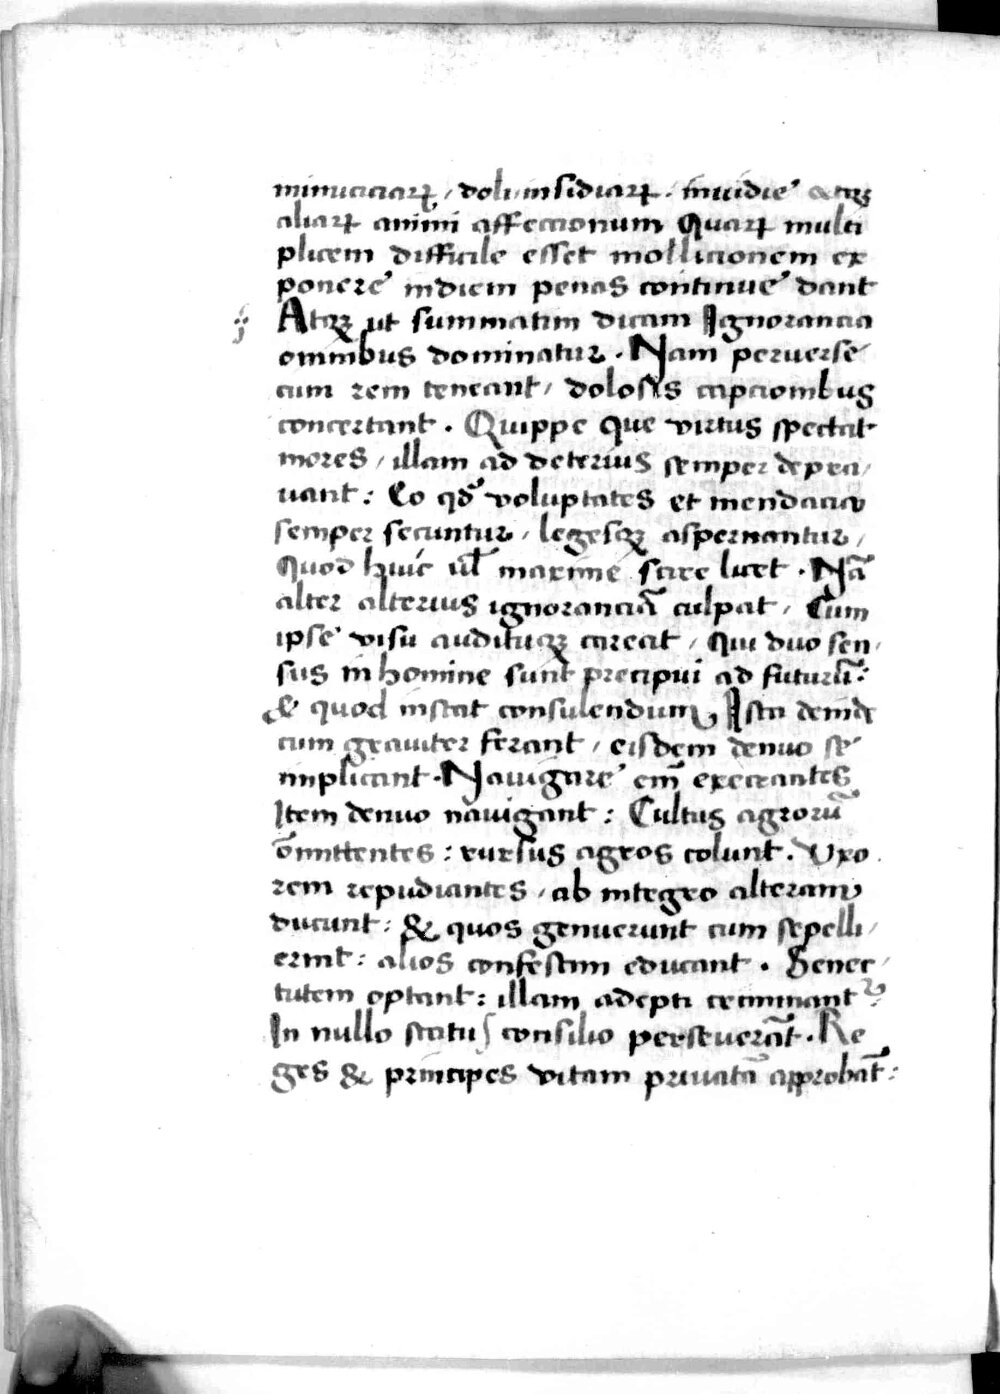 minuciaꝝ / doli insidiaꝝ . inuidie atqꝫ
aliaꝝ animi affectionum Quaꝝ multi
plicem difficile esset mollicionem ex
ponere indiem penas continue dant
Atqꝫ ut summatim dicam Ignorancia
omnibus dominatur . Nam peruerse
cum rem teneant / dolosis capcionibus
concertant . Quippe que virtus spectat
mores / illam ad deterius semper depra /
uant : Eo qđ voluptates et mendacia
semper secuntur / legesqꝫ aspernantur /
Quod huic vl̄ maxime scire licet . Nā
alter alterius ignoranciā culpat / Cum
ipse visu audituqꝫ careat / Qui duo sen /
sus in homine sunt precipui ad futurū :
& quod instat consulendum Ista deinde
cum grauiter ferant / eisdem denuo se
implicant . Nauigare em̄ execrantes
Item denuo nauigant : Cultus agrorū
ōmittentes : rursus agros colunt . Uxo
rem repudiantes / ab integro alteram
ducunt : & quos genuerunt cum sepelli /
erint : alios confestim educant . Senec /
tutem optant : illam adepti criminant᷑ :
In nullo statu consilio perseuerāt . Re
ges & principes vitam priuatā approbāt :